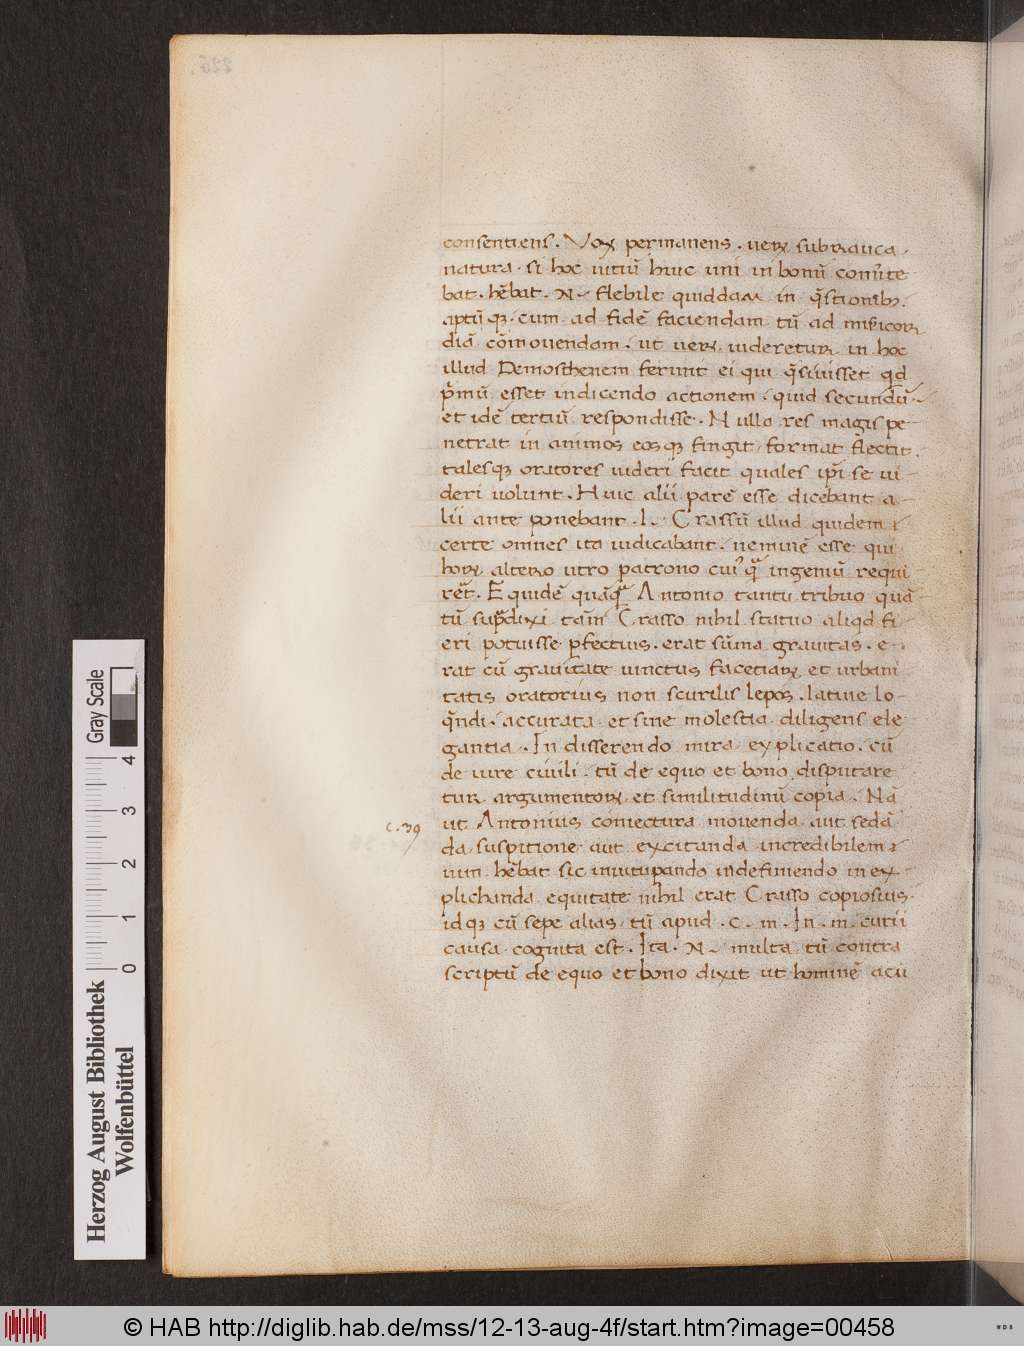 226.
consentiens. Vox permanens. ueꝝ subrauca.
natura. si hoc uitiū huic uni in bonū conũte
bat. hẽbat. N. flebile quiddam in q̃stionibꝫ.
aptūqꝫ. cum ad fidẽ faciendam tū ad mĩsicor
diā cõmouendam. ut ueꝝ. uideretur in hoc
illud Demosthenem ferunt ei qui q̃siuisset qd
p̃mū esset indicendo actionem. quid secundū.
et idẽ tertiū respondisse. Nullo res magis pe
netrat in animos eosqꝫ fingit format flectit.
talesqꝫ oratores uideri facit quales ip̃i se ui
deri uolunt. Huic alii parẽ esse dicebant a
lii ante ponebant. l. Crassū illud quidem
certe omnes ita iudicabant. neminẽ esse qui
hoꝝ altero utro patrono cuiꝰ q̃ ingeniū requi
ret̃. Equidẽ quãq̃ Antonio tantū tribuo quā
tū sup̃dixi tam̃ Crasso nihil statuo aliqd fi
eri potuisse ꝑfectius. erat sūma grauitas. e
rat cū grauitate uinctus facetiaꝝ et urbani
tatis oratorius non scurilis lepos. latine lo
q̃ndi. accurata et sine molestia diligens ele
gantia. In disserendo mira explicatio. cū
de iure ciuili. tū de equo et bono disputare
tur argumentoꝝ et similitudinū copia. Nā
c. 39
ut Antonius coniectura mouenda aut sedā
da suspitione aut excitanda incredibilem
uim hẽbat sic inuitupando indefiniendo in ex
plichanda equitate nihil erat Crasso copiosius.
idqꝫ cū sepe alias tū apud. c. m. In. m. curii
causa cognita est. Ita. N. multa tū contra
scriptū de equo et bono dixit ut hominẽ acu
Gray Scale
0 1 2 3 4
Herzog August Bibliothek
Wolfenbüttel
© HAB http://diglib.hab.de/mss/12-13-aug-4f/start.htm?image=00458